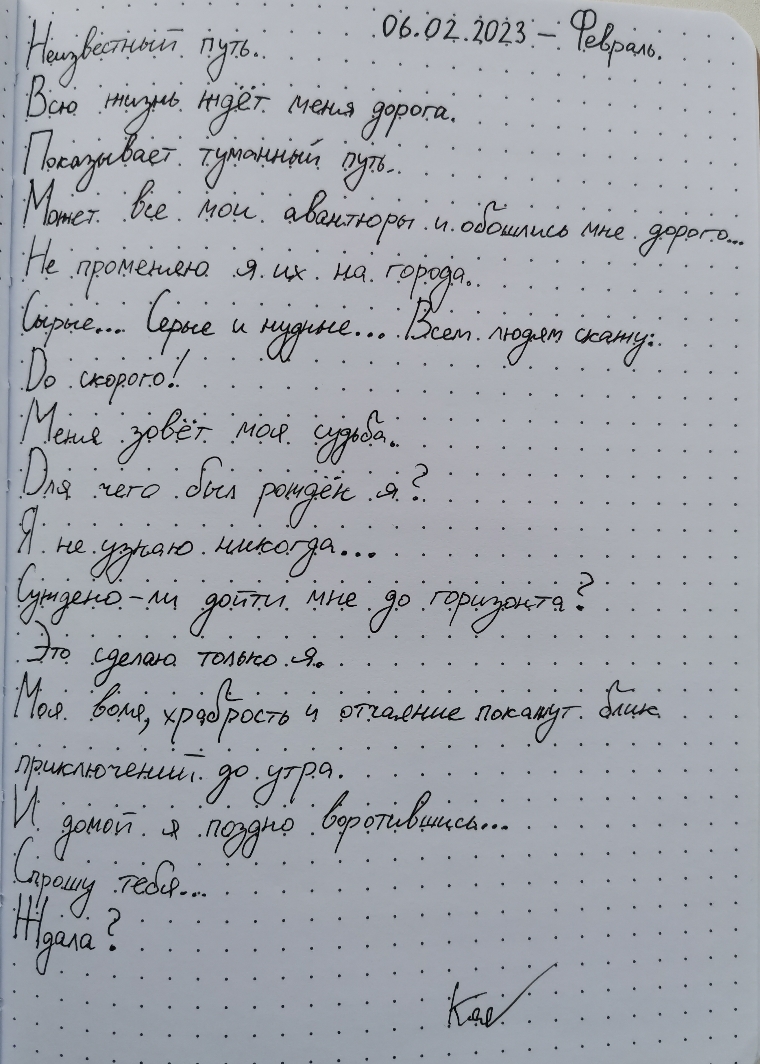 06.02.2023 - Февраль.
Неизвестный путь.
Всю жизнь ждёт меня дорога.
Показывает туманный путь.
Может все мои авантюры и обошлись мне дорого...
Не променяю я их на города.
Сырые... Серые и нудные... Всем людям скажу:
До скорого!
Меня зовёт моя судьба.
Для чего был рождён я?
Я не узнаю никогда...
Суждено-ли дойти мне до горизонта?
Это сделаю только я.
Моя воля, храбрость и отчаяние покажут блик
приключений до утра.
И домой я поздно воротившись...
Спрошу тебя...
Ждала?